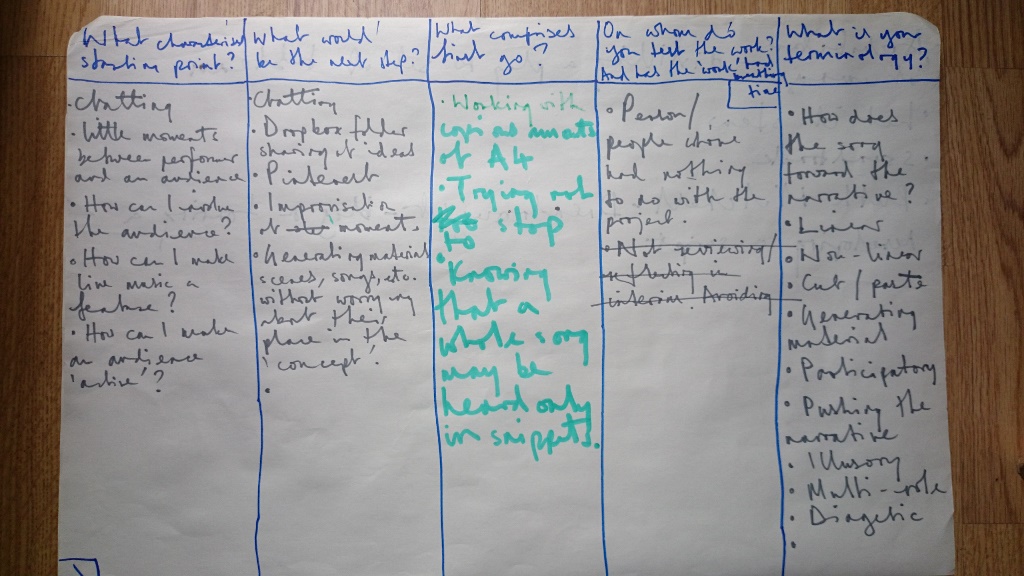 What characterises
starting point?
• Chatting
• Little moments
between performer
and an audience
• How can I involve
the audience?
• How can I make
live music a
feature?
• How can I make
an audience
'active'?
What would
be the next step?
• Chatting
• Dropbox folder
sharing of ideas
• Pinterest
• Improvisation
of moments
• Generating material
scenes, songs, etc.
without worrying
about their
place in the
'concept'.
•
What comprises
first go?
• Working with
copious amounts
of A4
• Trying not
to stop
•
Knowing
that a
whole song
may be
heard only
in snippets.
On whom do
you test the work?
And has the 'work' had
time
• Person/
people who've
had nothing
to do with the
project.
• Not reviewing/
reflecting in
interim Avoiding
What is your
terminology?
• How does
the song
forward the
narrative?
• Linear
• Non-linear
• Cut/paste
• Generating
material
• Participatory
• Pushing the
narrative
• Illusory
• Multi-role
• Diagetic
•